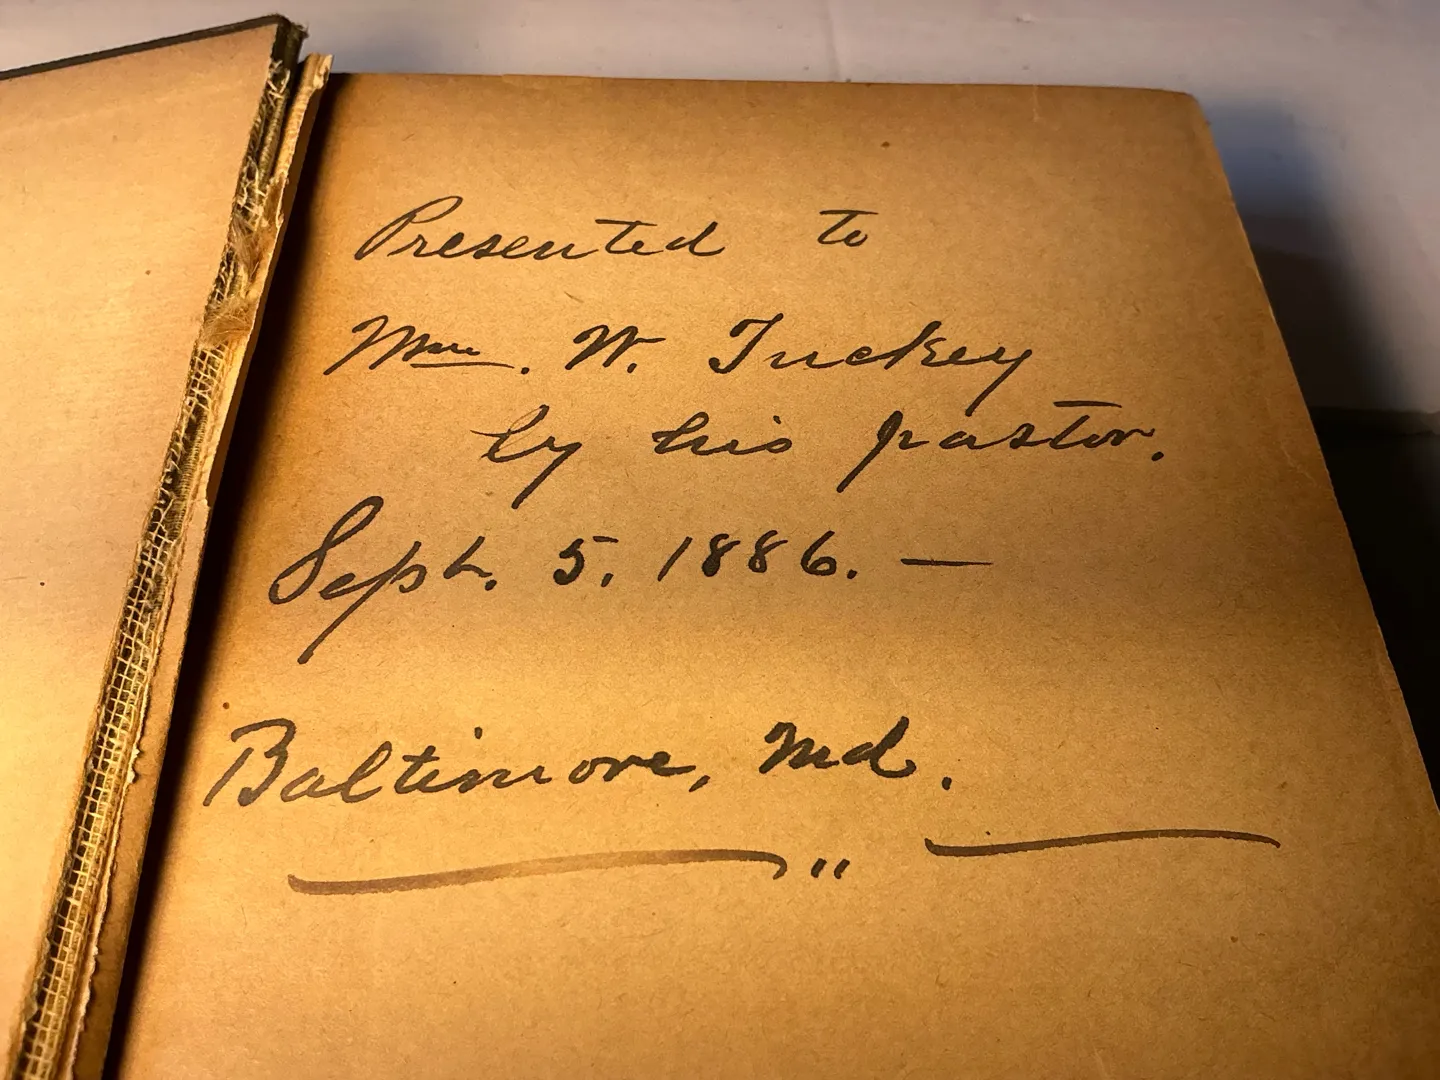 Presented to
Wm. W. Tuckey
by his pastor.
Sept. 5. 1886. —
Baltimore, Md.